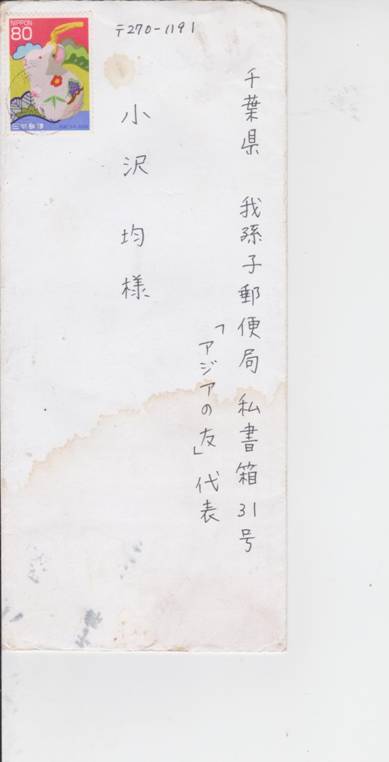 NIPPON
80
〒270-1191
千葉県 我孫子郵便局 私書箱31号
「アジアの友」代表
小沢 均様